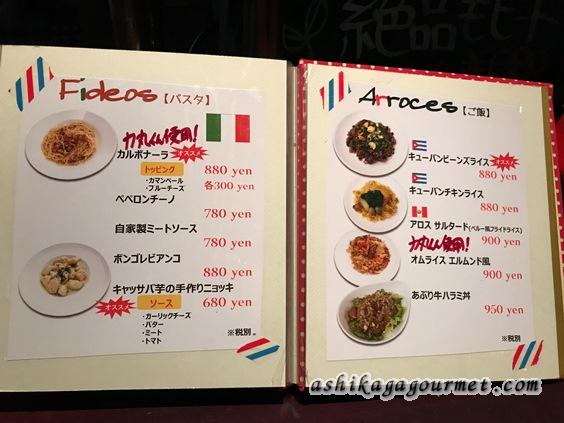 絶品
Fideos【パスタ】
カルボナーラ
オススメ
880 yen
トッピング
・カマンベール
・ブルーチーズ
各300 yen
ペペロンチーノ
780 yen
自家製ミートソース
780 yen
ボンゴレビアンコ
880 yen
キャッサバ芋の手作りニョッキ
オススメ
ソース
680 yen
・ガーリックチーズ
・バター
・ミート
・トマト
※税別
Arroces【ご飯】
キューバンビーンズライス
オススメ
880 yen
キューバンチキンライス
880 yen
アロス サルタード(ペルー風フライドライス)
900 yen
オムライス エルムンド風
900 yen
あぶり牛ハラミ丼
950 yen
※税別
ashikagagourmet.com